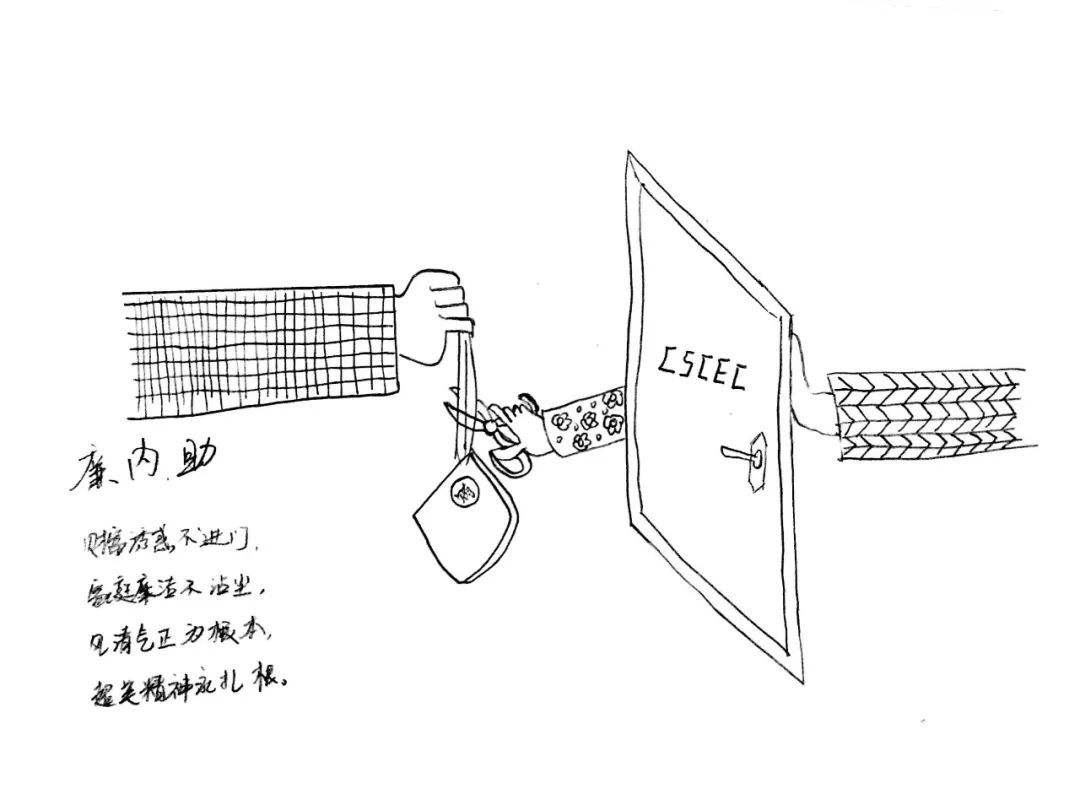 CSCEC
廉内助
财富诱惑不进门，
家庭廉洁不沾尘，
风清气正为根本，
超英精神永扎根。